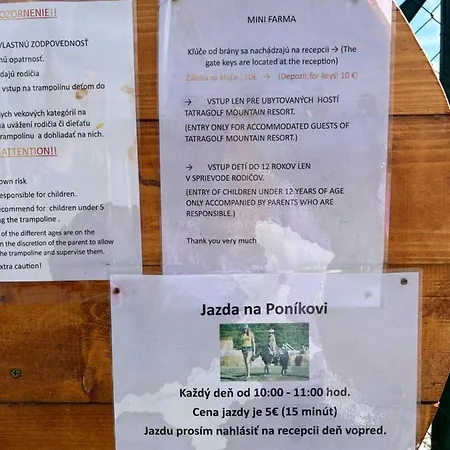 POZORNENIE!!
VLASTNÚ ZODPOVEDNOSŤ
nú opatrnosť.
dajú rodičia
vstup na trampolínu deťom do
ych vekových kategórií na
na uvážení rodiča či dieťaťu
trampolínu a dohliadať na nich.
ATTENTION!!
own risk
responsible for children.
ecommend for children under 5
ng the trampoline .
of the different ages are on the
on the discretion of the parent to allow
the trampoline and supervise them.
extra caution!
MINI FARMA
Kľúče od brány sa nachádzajú na recepcii → (The
gate keys are located at the reception)
Záloha za kľúče . 10€ → (Depozit for keys: 10 €)
→ VSTUP LEN PRE UBYTOVANÝCH HOSTÍ
TATRAGOLF MOUNTAIN RESORT.
(ENTRY ONLY FOR ACCOMMODATED GUESTS OF
TATRAGOLF MOUNTAIN RESORT.)
→ VSTUP DETÍ DO 12 ROKOV LEN
V SPRIEVODE RODIČOV.
(ENTRY OF CHILDREN UNDER 12 YEARS OF AGE
ONLY ACCOMPANIED BY PARENTS WHO ARE
RESPONSIBLE.)
Thank you very much
Jazda na Poníkovi
Každý deň od 10:00 - 11:00 hod.
Cena jazdy je 5€ (15 minút)
Jazdu prosím nahlásiť na recepcii deň vopred.